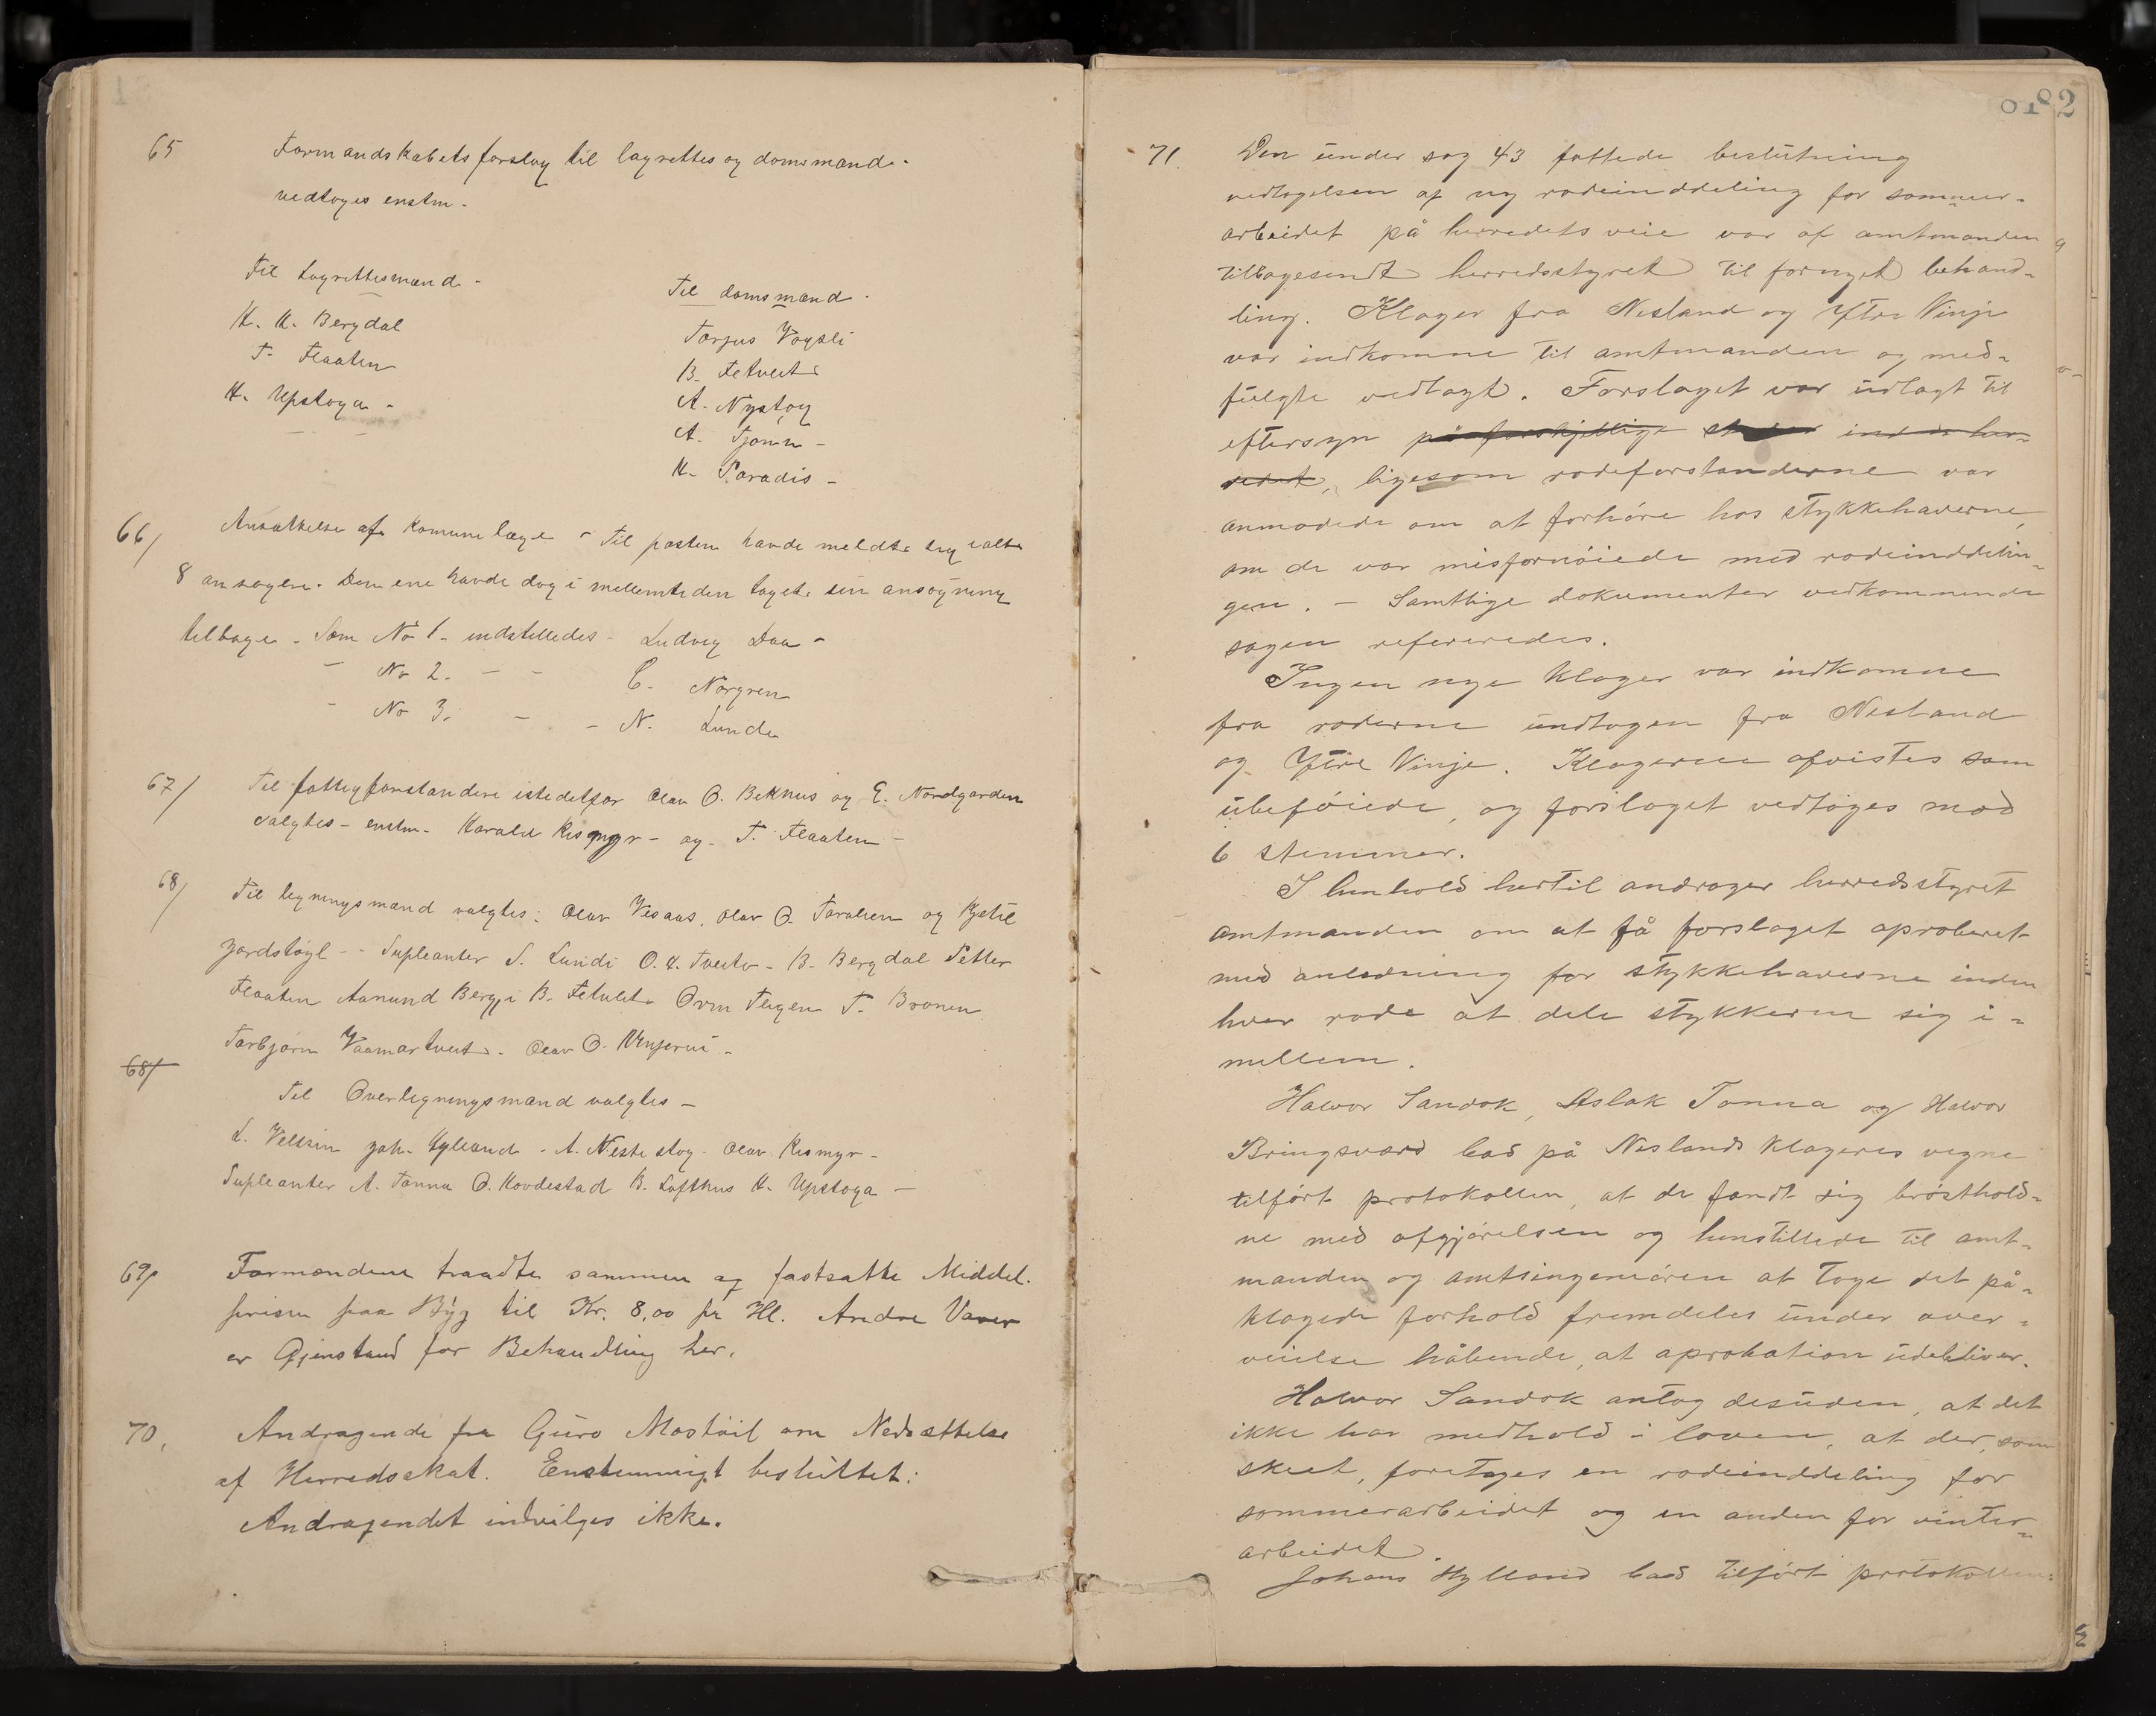 65 Formandskabets forslag til lagrettes og domsmænd-
vedtoges enstm.
Til Lagrettesmænd -
K. K. Bergdal
T. Flaaten
H. Upstoga -
Til domsmænd -
Torjus Vågsli
B. Tetveit
A. Nystog
A. Tjønn -
K. Paradis -
66/ Ansættelse af Komunelæge - Til posten havde meldt sig ialt
8 ansøgere. Den ene havde dog i mellemtiden taget sin ansøgning
tilbage - Som No 1 - indstilledes - Ludvig Daa -
- No 2. - - C. Norgren
- No 3. - - N. Lunde
67/ Til fattigforstandere istedetfor Olav O. Bekhus og E. Nordgarden
valgtes - enstm - Harald Kismyr - og - T. Flaaten -
68/ Til ligningsmænd valgtes: Olav Vesaas, Olav O. Taralsen og Kjetil
Jordstøyl - - Supleanter S. Lundi O. Tveito - B. Bergdal Petter
Flaaten Aanund Berge B. Tetveit Orm Teigen T. Bronen
Torbjørn Vaamartveit - Olav O.
68/
Til Overligningsmænd valgtes -
S. Joh. Hylland - A. Nestestog - Olav Kismyr -
Supleanter A. Tonna O. Hovdestad B. Lofthus H. Upstoga -
69/ Formændene traadte sammen og fastsatte Middel-
prisen paa Byg til Kr. 8,00 pr Hl. Andre Varer
er Gjenstand for Behandling her.
70, Andragende fra Guro Mostøil om Nedsættelse
af Herredsskat. Enstemmigt besluttet:
Andragendet indvilges ikke.
82
71. Den under sag 43 fattede beslutning
vedtagelsen af ny rodeinddeling for sommer-
arbeidet på herredets veie var af amtmanden
tilbagesendt herredsstyret til fornyet behand-
ling. Klager fra Nesland og Ytre Vinje
var indkomne til amtmanden og med-
fulgte vedlagt. Forslaget var udlagt til
eftersyn på forskjellige steder inden her-
redet, ligesom rodeforstanderne var
anmodede om at forhøre hos stykkehaverne,
om de var misfornøiede med rodeinddelin-
gen. - Samtlige dokumenter vedkommende
sagen refereredes.
Ingen nye klager var indkomne
fra roderne undtagen fra Nesland
og Ytre Vinje. Klagerne afvistes som
ubeføiede, og forslaget vedtoges mod
6 stemmer.
I henhold hertil andrager herredsstyret
amtmanden om at få forslaget aproberet
med anledning for stykkehaverne inden
hver rode at dele stykkerne sig i-
mellem.
Halvor Sandok, Aslak Tonna og Halvor
Bringsværd bad på Neslands klageres vegne
tilført protokollen, at de fandt sig brøsthold-
ne med afgjørelsen og henstillede til amt-
manden og amtsingeniøren at tage det på-
klagede forhold fremdeles under over-
veielse håbende, at aprobation udebliver.
Halvor Sandok antog desuden, at det
ikke har medhold i loven, at der, som
skeet, foretages en rodeinddeling for
sommerarbeidet og en anden for vinter-
arbeidet.
Johans Hylland bad tilført protokollen: